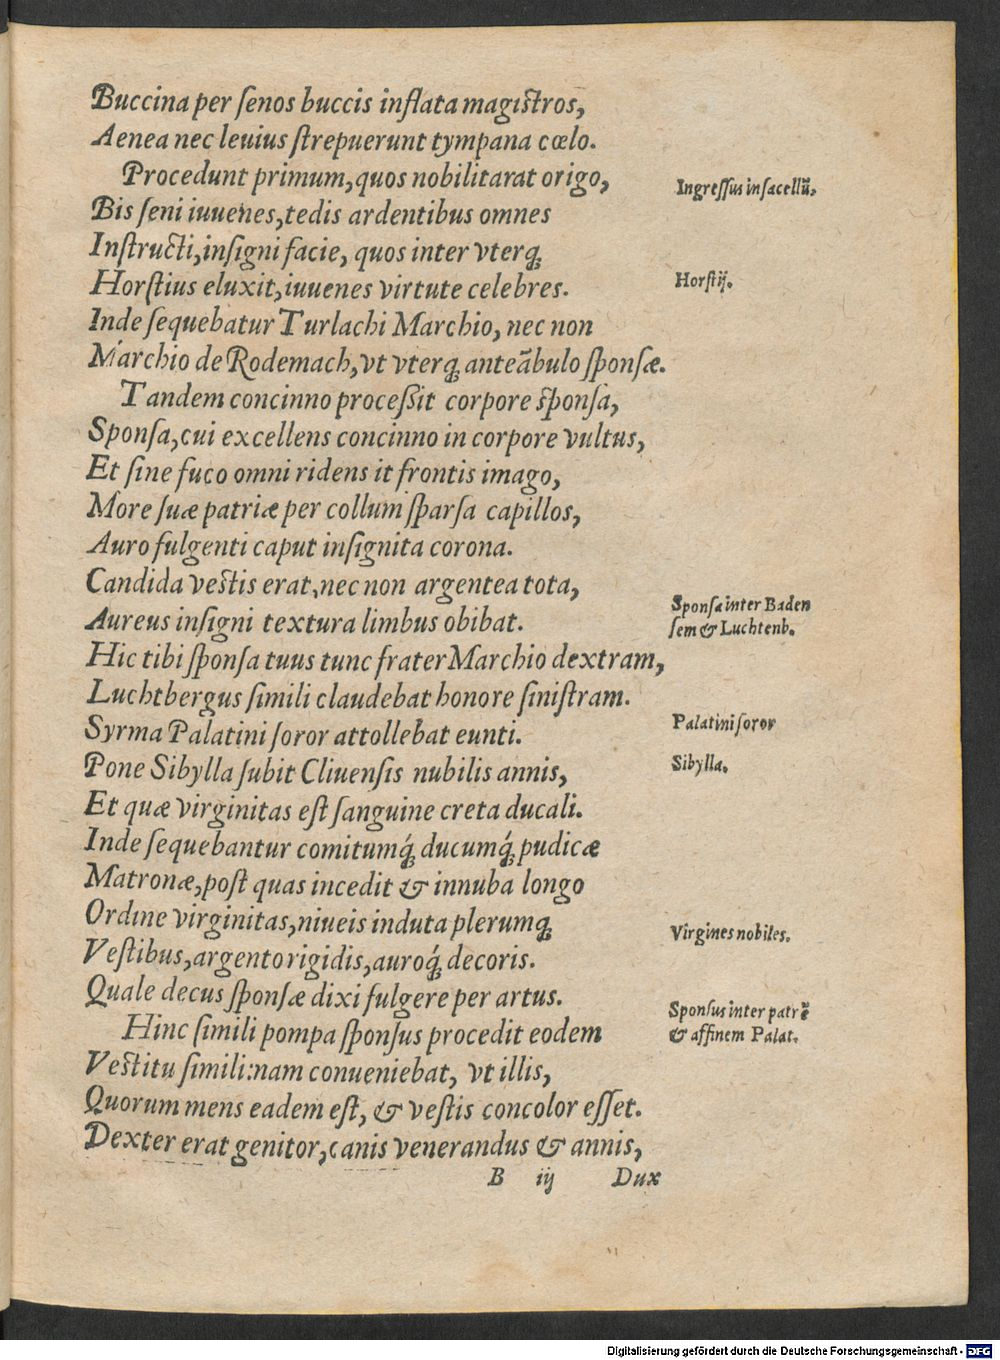 Buccina per ſenos buccis inflata magiſtros,
Aenea nec leuius ſtrepuerunt tympana cœlo.
Procedunt primum, quos nobilitarat origo,
Ingreſſus in ſacellū.
Bis ſeni iuuenes, tedis ardentibus omnes
Inſtructi, inſigni facie, quos inter vterq́
Horſtius eluxit, iuuenes virtute celebres.
Horſtij.
Inde ſequebatur Turlachi Marchio, nec non
Marchio de Rodemach, vt vterq; anteãbulo ſponſæ.
Tandem concinno proceßit corpore ſponſa,
Sponſa, cui excellens concinno in corpore vultus,
Et ſine fuco omni ridens it frontis imago,
More ſuæ patriæ per collum ſparſa capillos,
Auro fulgenti caput inſignita corona.
Candida veſtis erat, nec non argentea tota,
Aureus inſigni textura limbus obibat.
Sponſa inter Baden
ſem & Luchtenb.
Hic tibi ſponſa tuus tunc frater Marchio dextram,
Luchtbergus ſimili claudebat honore ſiniſtram.
Syrma Palatini ſoror attollebat eunti.
Palatini ſoror
Pone Sibylla ſubit Cliuenſis nubilis annis,
Sibylla.
Et quæ virginitas eſt ſanguine creta ducali.
Inde ſequebantur comitumq́; ducumq́; pudicæ
Matronæ, poſt quas incedit & innuba longo
Ordine virginitas, niueis induta plerumq;
Virgines nobiles.
Veſtibus, argento rigidis, auroq́; decoris.
Quale decus ſponſæ dixi fulgere per artus.
Hinc ſimili pompa ſponſus procedit eodem
Sponſus inter patrē
& affinem Palat.
Veſtitu ſimili: nam conueniebat, vt illis,
Quorum mens eadem eſt, & veſtis concolor eſſet.
Dexter erat genitor, canis venerandus & annis,
B iij Dux
Digitalisierung gefördert durch die Deutsche Forschungsgemeinschaft - DFG